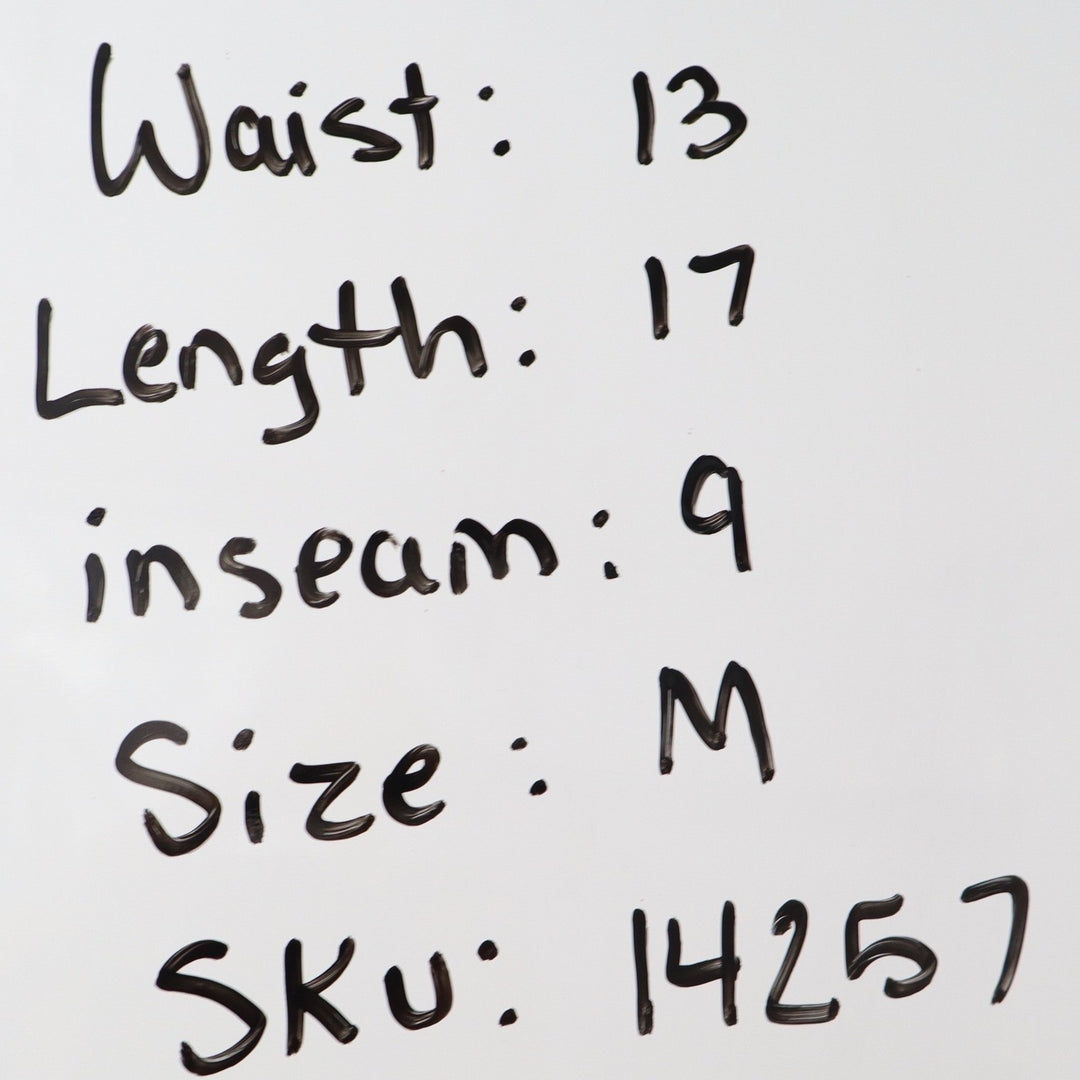 Waist: 13
Length: 17
inseam: 9
Size: M
SKU: 14257